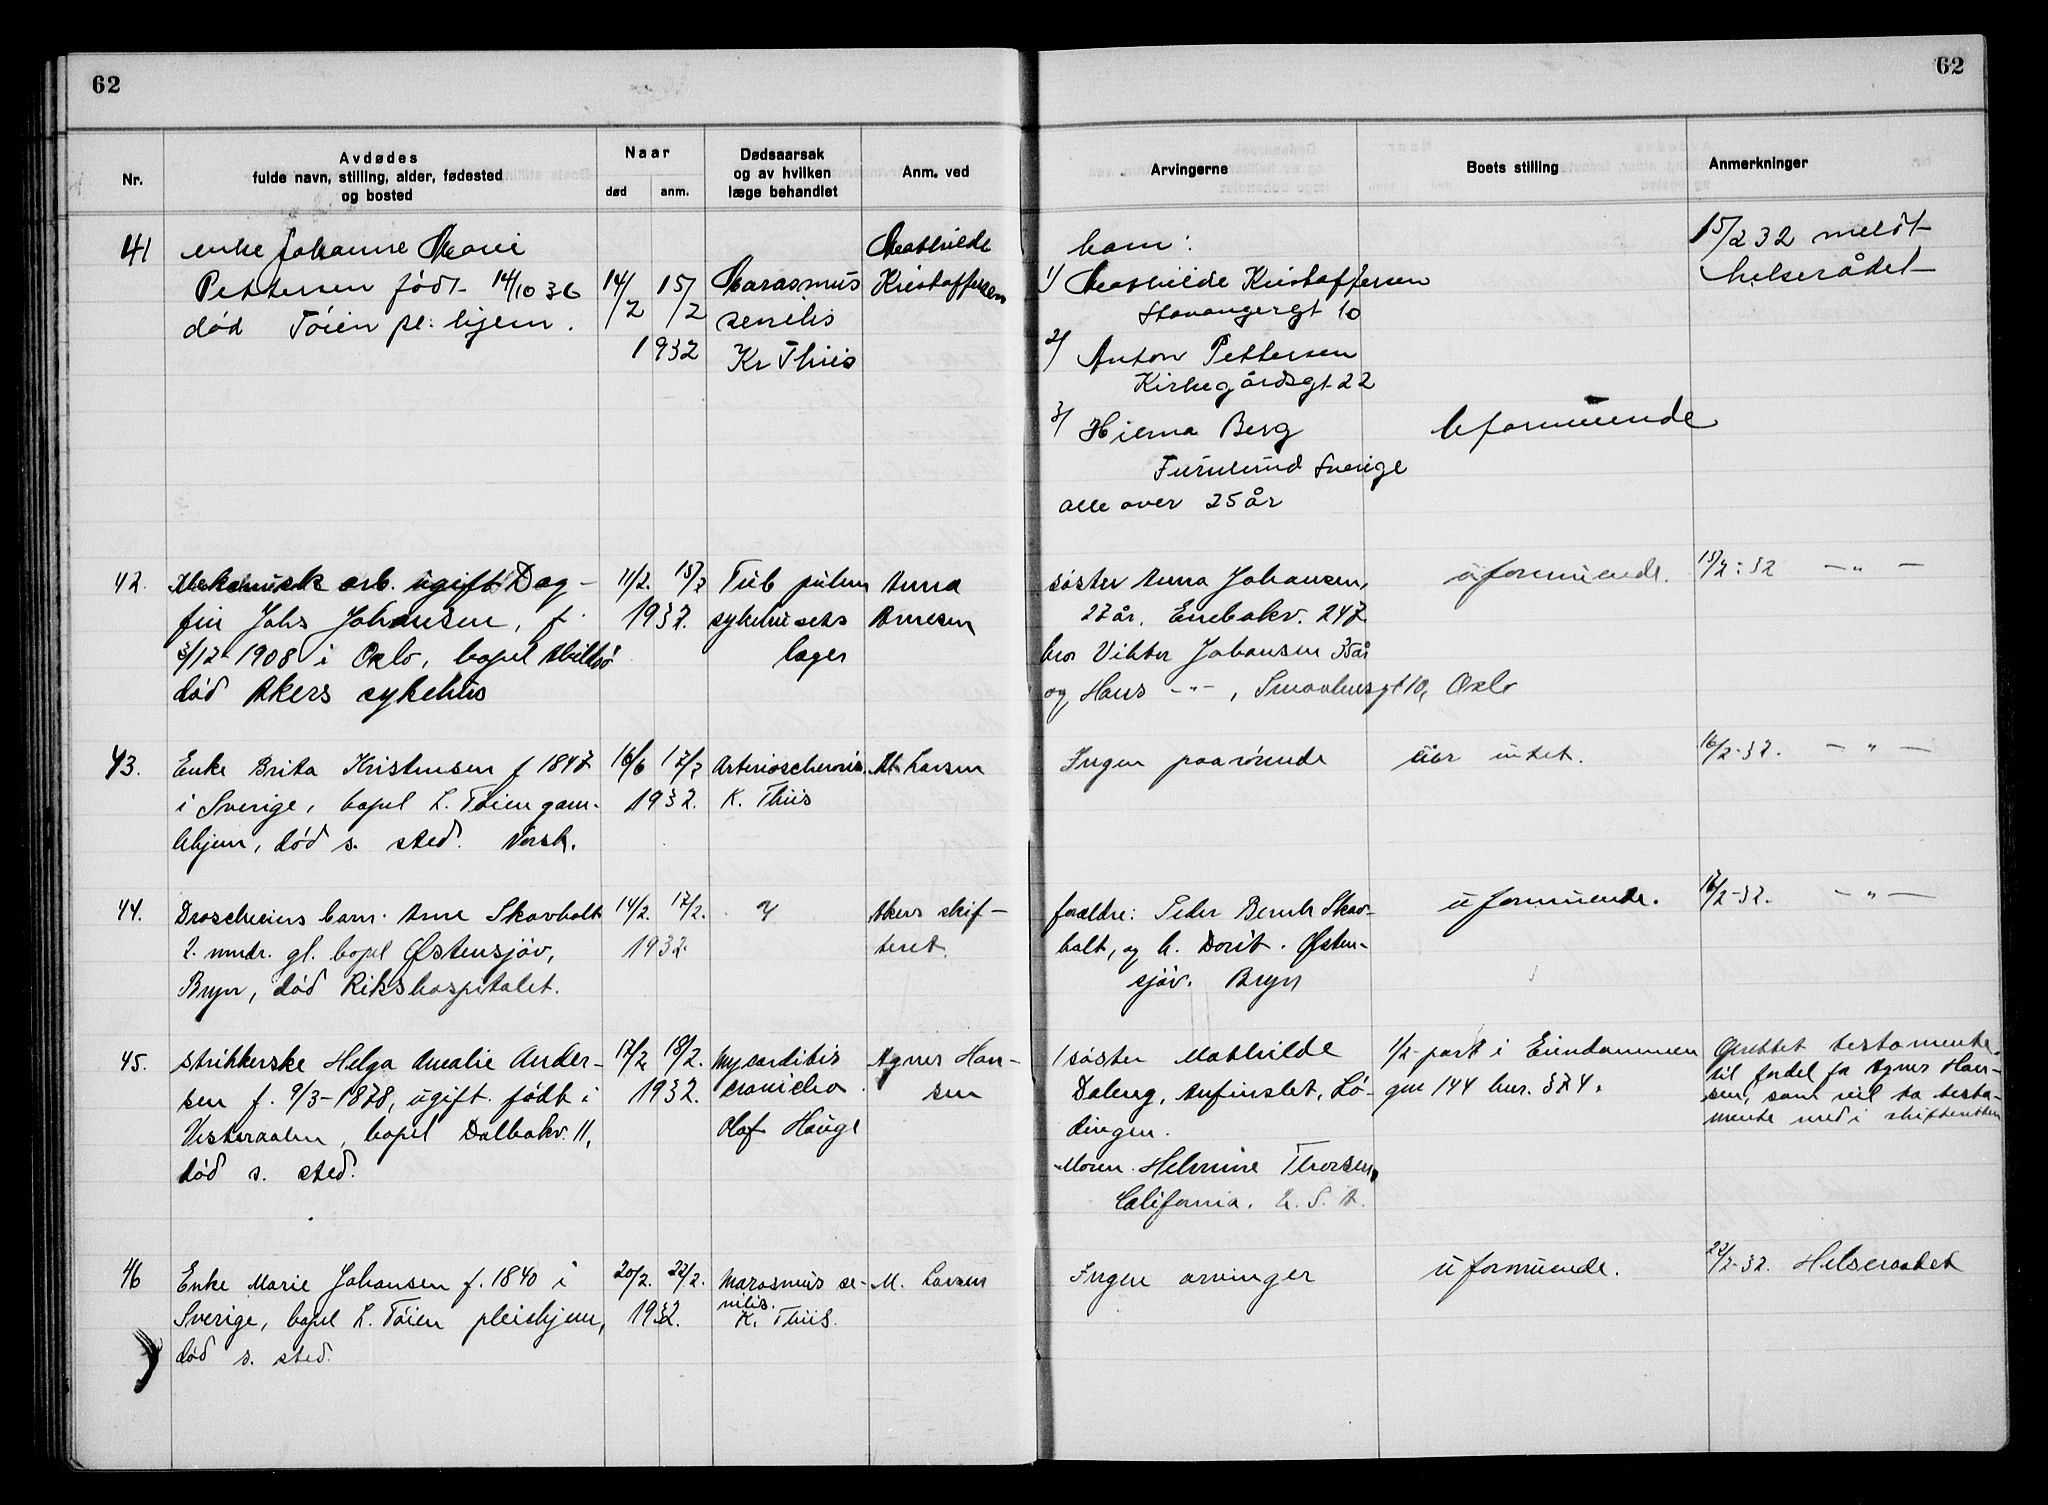 62
62
Nr.
Avdødes
fulde navn, stilling, alder, fødested
og bosted
Naar
død
anm.
Dødsaarsak
og av hvilken
læge behandlet
Anm. ved
Arvingerne
Boets stilling
Anmerkninger
41
enke Johanne Marie
Pettersen født 14/10 36
død Tøien pl: hjem.
14/2
15/2
1932
Marasmus
senilis
Kr Thiis
Mathilde
Kristoffersen
barn:
1/ Mathilde Kristoffersen
Stavangergt 10
2/ Anton Pettersen
Kirkegårdsgt 22
3/ Hilma Berg
Sverige
alle over 25 år
Uformuende
15/2 32 meldt
helserådet
42.
Mekanisk arb. ugift Dag-
fin Johs Johansen, f.
1908 i Oslo, bopel Abildsø
død Akers sykehus
11/2. 15/2
1932.
Tub pulm
sykehusets
læger
Anna
Arnesen
søster Anna Johansen,
27 år. Enebakv. 247
bror Viktor Johansen 35 år
og Hans -"-, Oslo
uformuende.
15/2-32 -"-
43.
Enke Brita Kristensen f 1847
i Sverige, bopel L. Tøien gam-
lehjem, død s. sted. Norsk.
17/2
1932.
K. Thiis
M. Larsen
Ingen paarørende
eier intet.
16/2-32. -"-
44.
barn Arne Skavholt
2. mndr. gl. bopel Østensjøv,
Bryn, død Rikshospitalet.
14/2. 17/2.
1932.
?
Akers skif-
teret.
forældre: Peder Bernh Skav-
holt, og h. Dorit. Østen-
sjøv. Bryn
uformuende.
17/2-32. -"-
45.
strikkerske Helga Amalie Ander-
sen f. 9/3-1878, ugift født i
Vesteraalen, bopel Dalbakv. 11,
død s. sted.
17/2 18/2.
1932.
Mycarditis
cronicha
Olaf Hauge
Agnes Han-
sen
1 søster Mathilde
Daleng, Lø-
dingen.
Moren Helmine Thorsen,
California. U.S.A.
1/2 part i Eiendommen
gnr 144 bnr. 374.
Oprettet testamente
til fordel fa Agnes Han-
sen, som vil ta testa-
mente med i skifteretten
46
Enke Marie Johansen f. 1840 i
Sverige, bopel L. Tøien pleiehjem,
død s. sted.
20/2. 22/2.
1932.
Marasmus se-
nilis.
K. Thiis.
M. Larsen
Ingen arvinger
uformuende.
22/2-32. Helseraadet